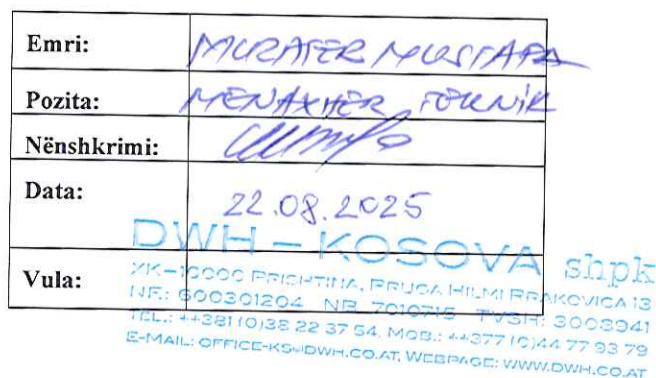 Emri: MURATER MUSTAFA
Pozita: MENAXHER TEKNIK
Nënshkrimi:
Data: 22.08.2025
DWH – KOSOVA shpk
Vula: XK–10000 PRISHTINA, PRUGA HILMI RRAKOVICA 13
NF.: 600301204 NR. 7010715 TVSH: 3003941
TEL.: ++381(0)38 22 37 54, MOB.: ++377 (0)44 77 93 79
E-MAIL: OFFICE-KS@DWH.CO.AT, WEBPAGE: WWW.DWH.CO.AT